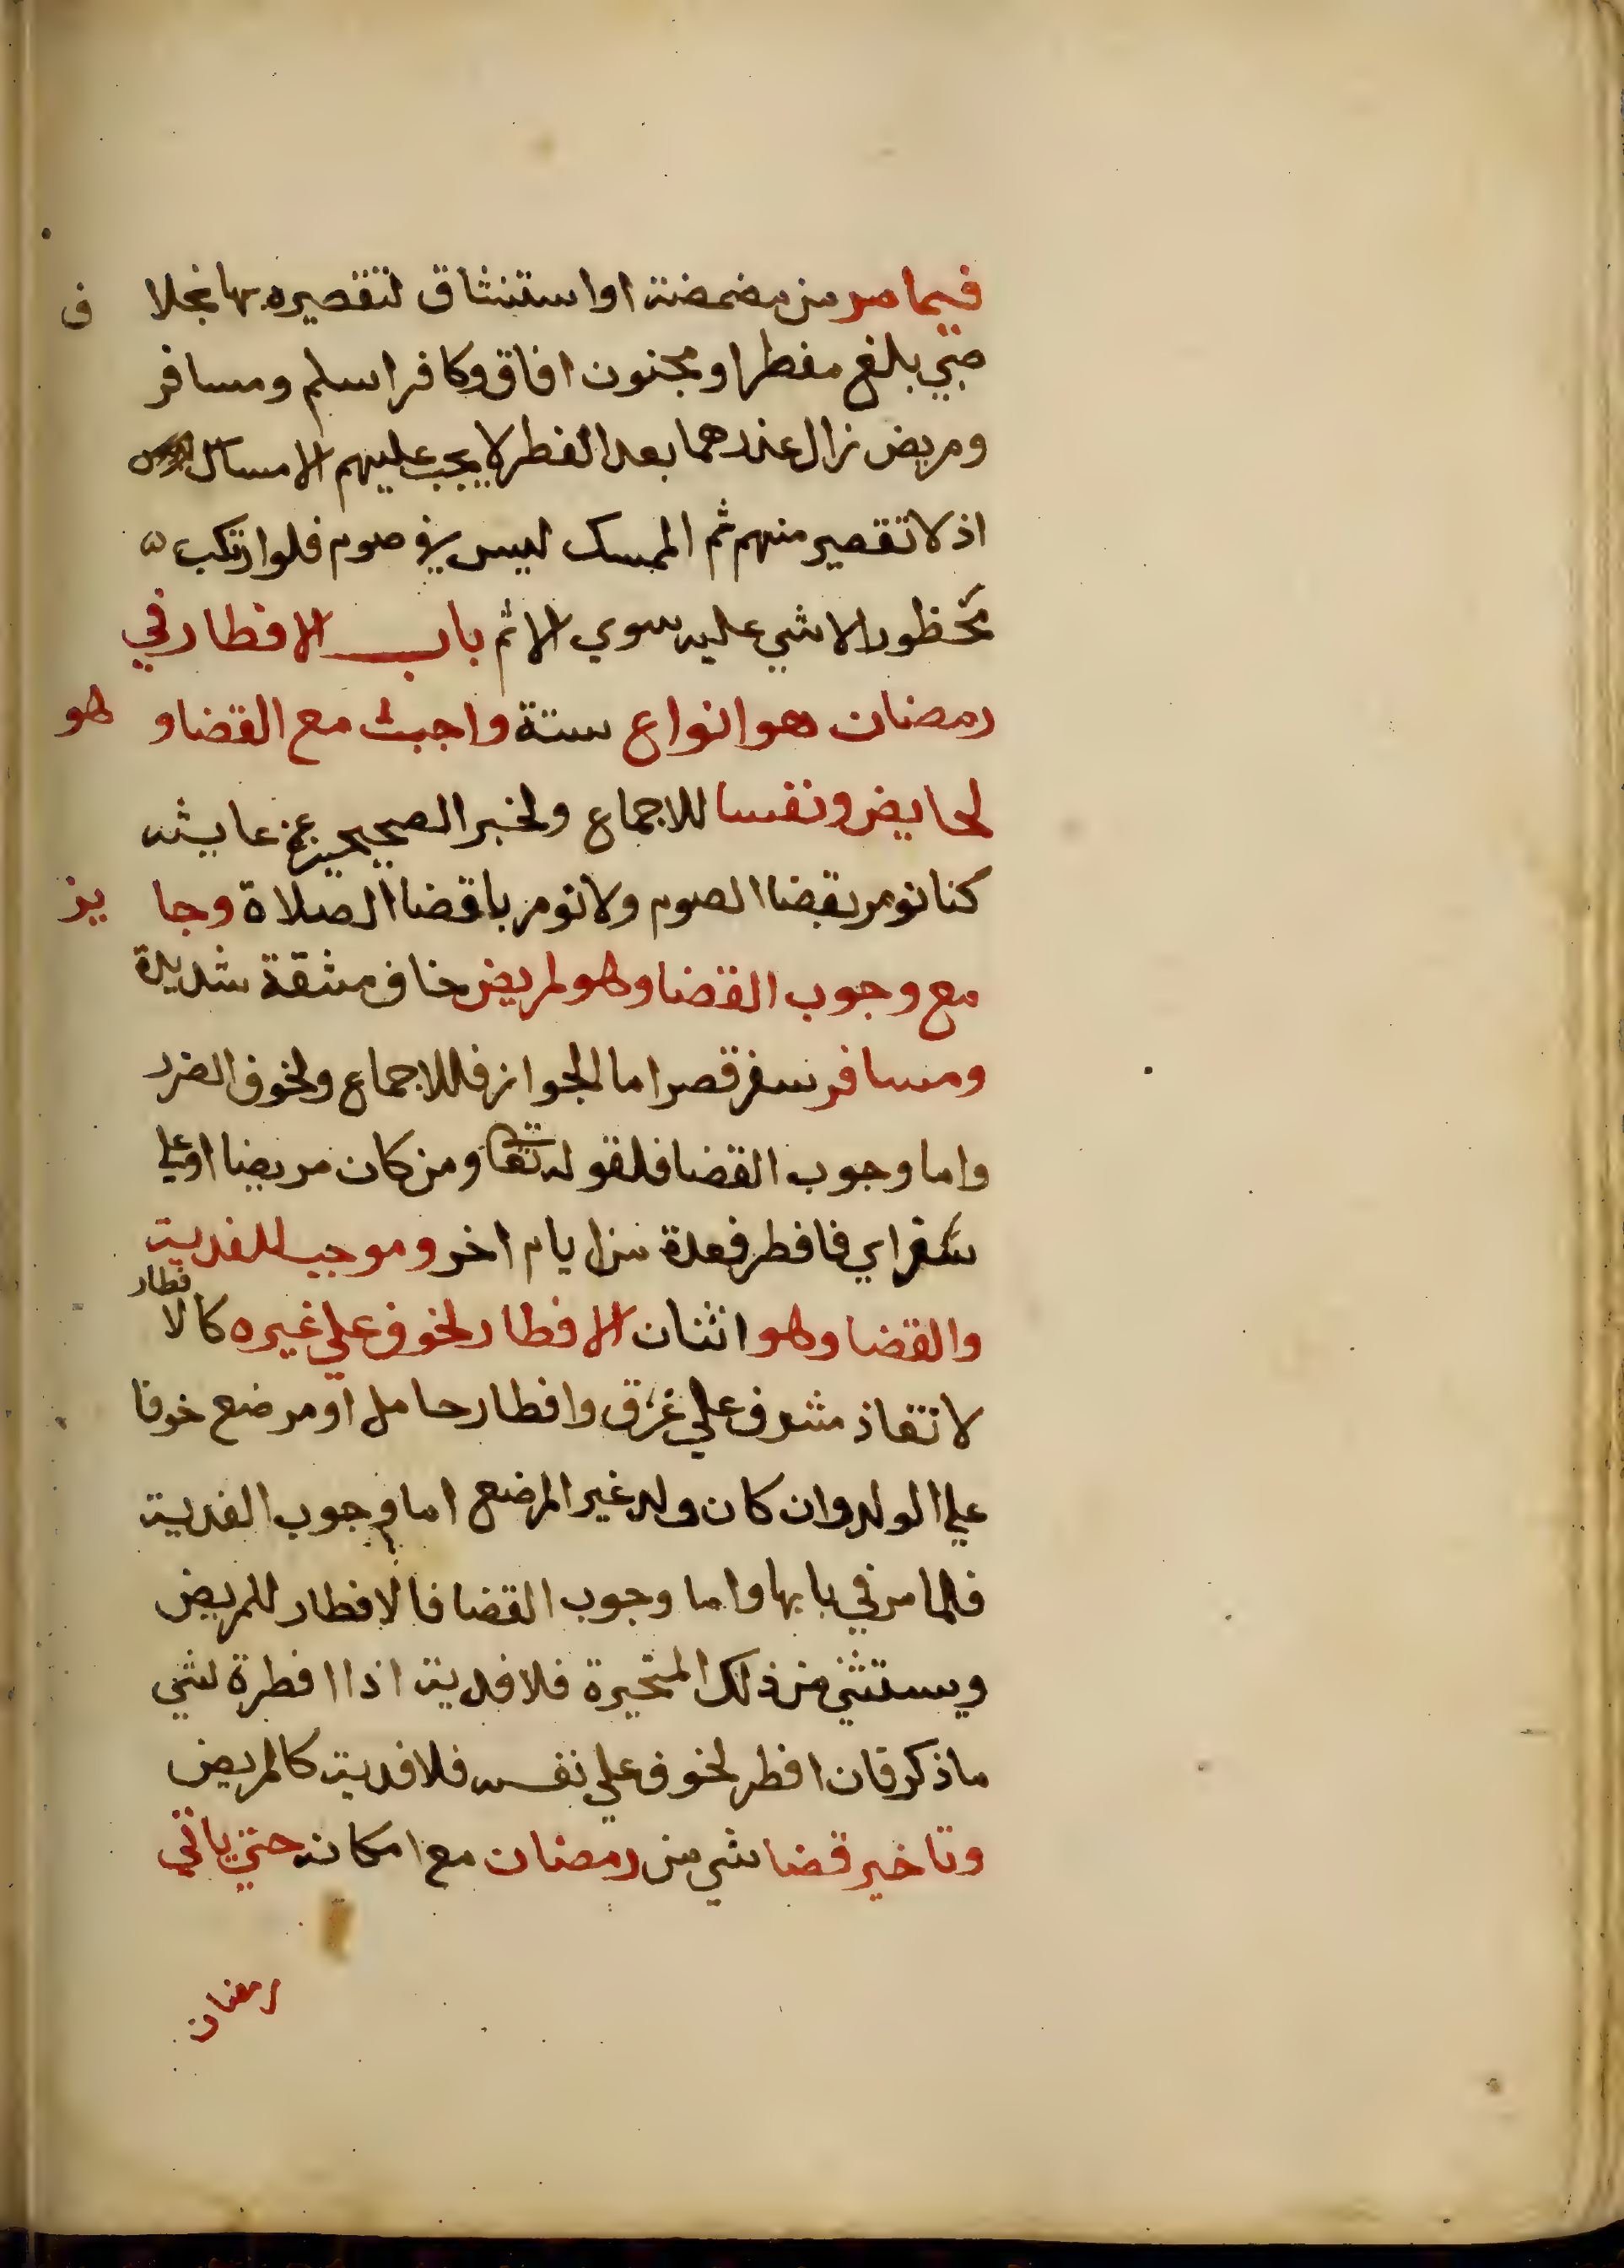 فيما مر من مضمضة او استنشاق لتقصيره بها بخلا ف
صبي بلغ مفطرا ومجنون افاق وكافر اسلم ومسافر
ومريض زال عذرهما بعد الفطر لا يجب عليهم الامساك
اذ لا تقصير منهم ثم الممسك ليس في صوم فلو ارتكب
محظورا لا شي عليه سوي الاثم باب الافطار في
رمضان هو انواع ستة واجب مع القضا و هو
لحايض ونفسا للاجماع ولخبر الصحيحين عن عايشه
كنا نومر بقضا الصوم ولا نومر باقضا الصلاة وجا يز
مع وجوب القضا وهو لمريض خاف مشقة شديدة
ومسافر سفر قصر اما الجواز فللاجماع ولخوف الضرر
واما وجوب القضا فلقوله تعا ومن كان مريضا او علي
سفر اي فافطر فعدة من ايام اخر وموجب للفدية
والقضا وهو اثنان الافطار لخوف علي غيره كالا فطار
لانقاذ مشرف علي غرق وافطار حامل او مرضع خوفا
علي الولد وان كان ولد غير المرضع اما وجوب الفدية
فلما مر في بابها واما وجوب القضا فالافطار للمريض
ويستثني من ذلك المتحيرة فلا فدية اذا افطرة لشي
ما ذكر فان افطر لخوف علي نفسه فلا فدية كالمريض
وتاخير قضا شي من رمضان مع امكانه حتي ياتي
رمضان